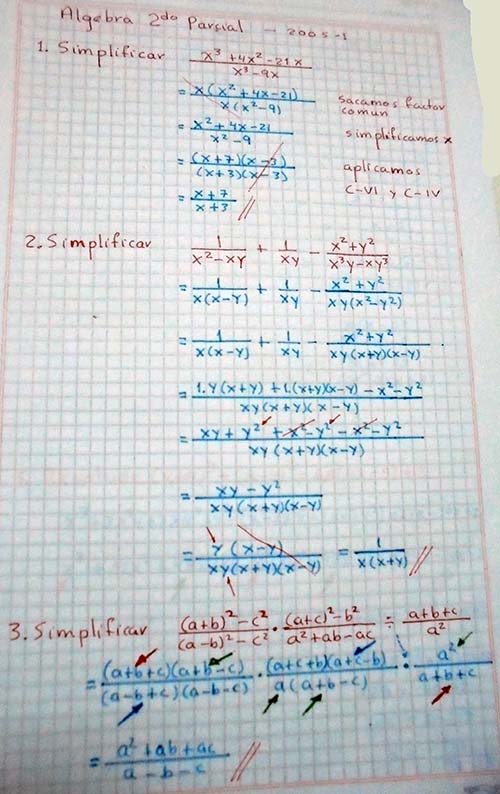 Algebra 2do Parcial - 2005-1
1. Simplificar (x³ + 4x² - 21x)/(x³ - 9x)
= x(x² + 4x - 21)/x(x² - 9) sacamos factor común
= (x² + 4x - 21)/(x² - 9) simplificamos x
= (x + 7)(x - 3)/(x + 3)(x - 3) aplicamos C-VI y C-IV
= (x + 7)/(x + 3) //
2. Simplificar 1/(x² - xy) + 1/xy - (x² + y²)/(x³y - xy³)
= 1/x(x - y) + 1/xy - (x² + y²)/xy(x² - y²)
= 1/x(x - y) + 1/xy - (x² + y²)/xy(x + y)(x - y)
= (1.y(x + y) + 1.(x + y)(x - y) - x² - y²)/xy(x + y)(x - y)
= (xy + y² + x² - y² - x² - y²)/xy(x + y)(x - y)
= (xy - y²)/xy(x + y)(x - y)
= y(x - y)/xy(x + y)(x - y) = 1/x(x + y) //
3. Simplificar ((a+b)² - c²)/((a-b)² - c²) · ((a+c)² - b²)/(a² + ab - ac) ÷ (a+b+c)/a²
= (a+b+c)(a+b-c)/(a-b+c)(a-b-c) · (a+c+b)(a+c-b)/a(a+b-c) · a²/(a+b+c)
= (a² + ab + ac)/(a - b - c) //